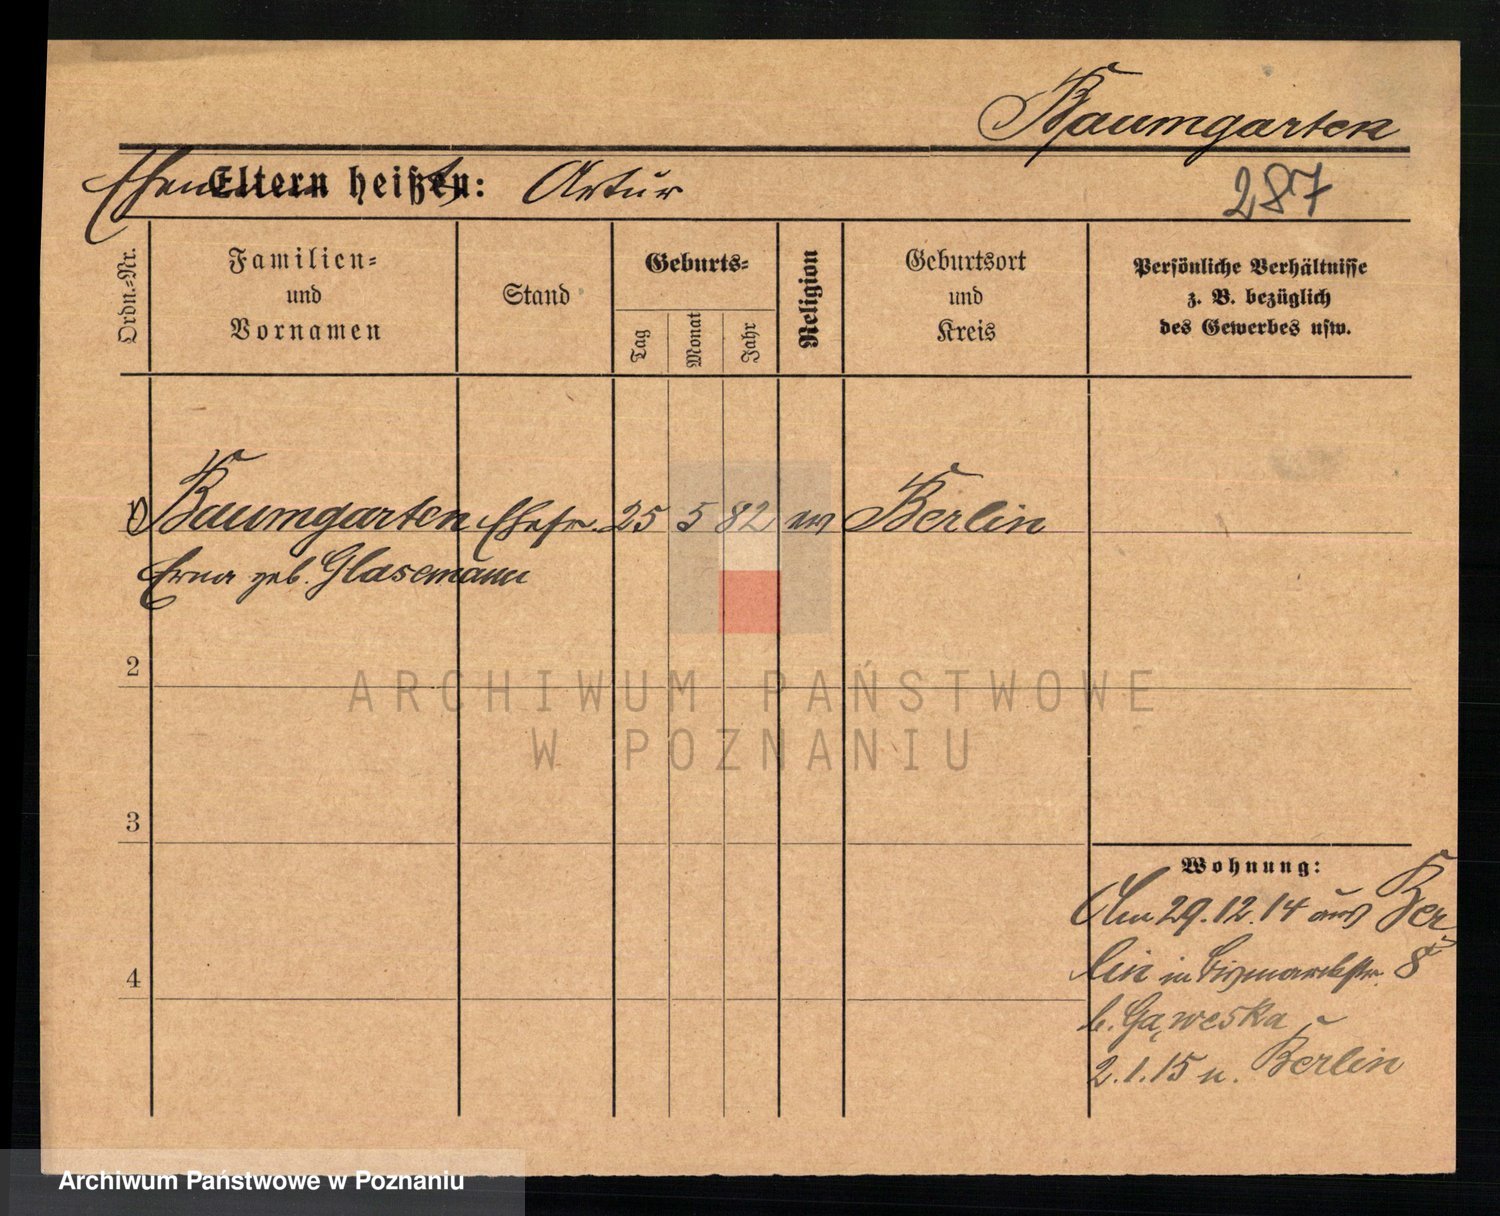 Baumgarten
Eltern heißen: Artur
287
Ordn.-Nr.
Familien-
und
Vornamen
Stand
Geburts-
Tag
Monat
Jahr
Religion
Geburtsort
und
Kreis
Persönliche Verhältnisse
z. B. bezüglich
des Gewerbes usw.
1 Baumgarten Ehefr. 25 5 82 ev Berlin
Erna geb. Glasemann
2
ARCHIWUM PAŃSTWOWE
W POZNANIU
3
4
Wohnung:
Am 29.12.14 aus Ber-
lin in Bismarckstr. 8
b. Gąweska
2.1.15 n. Berlin
Archiwum Państwowe w Poznaniu